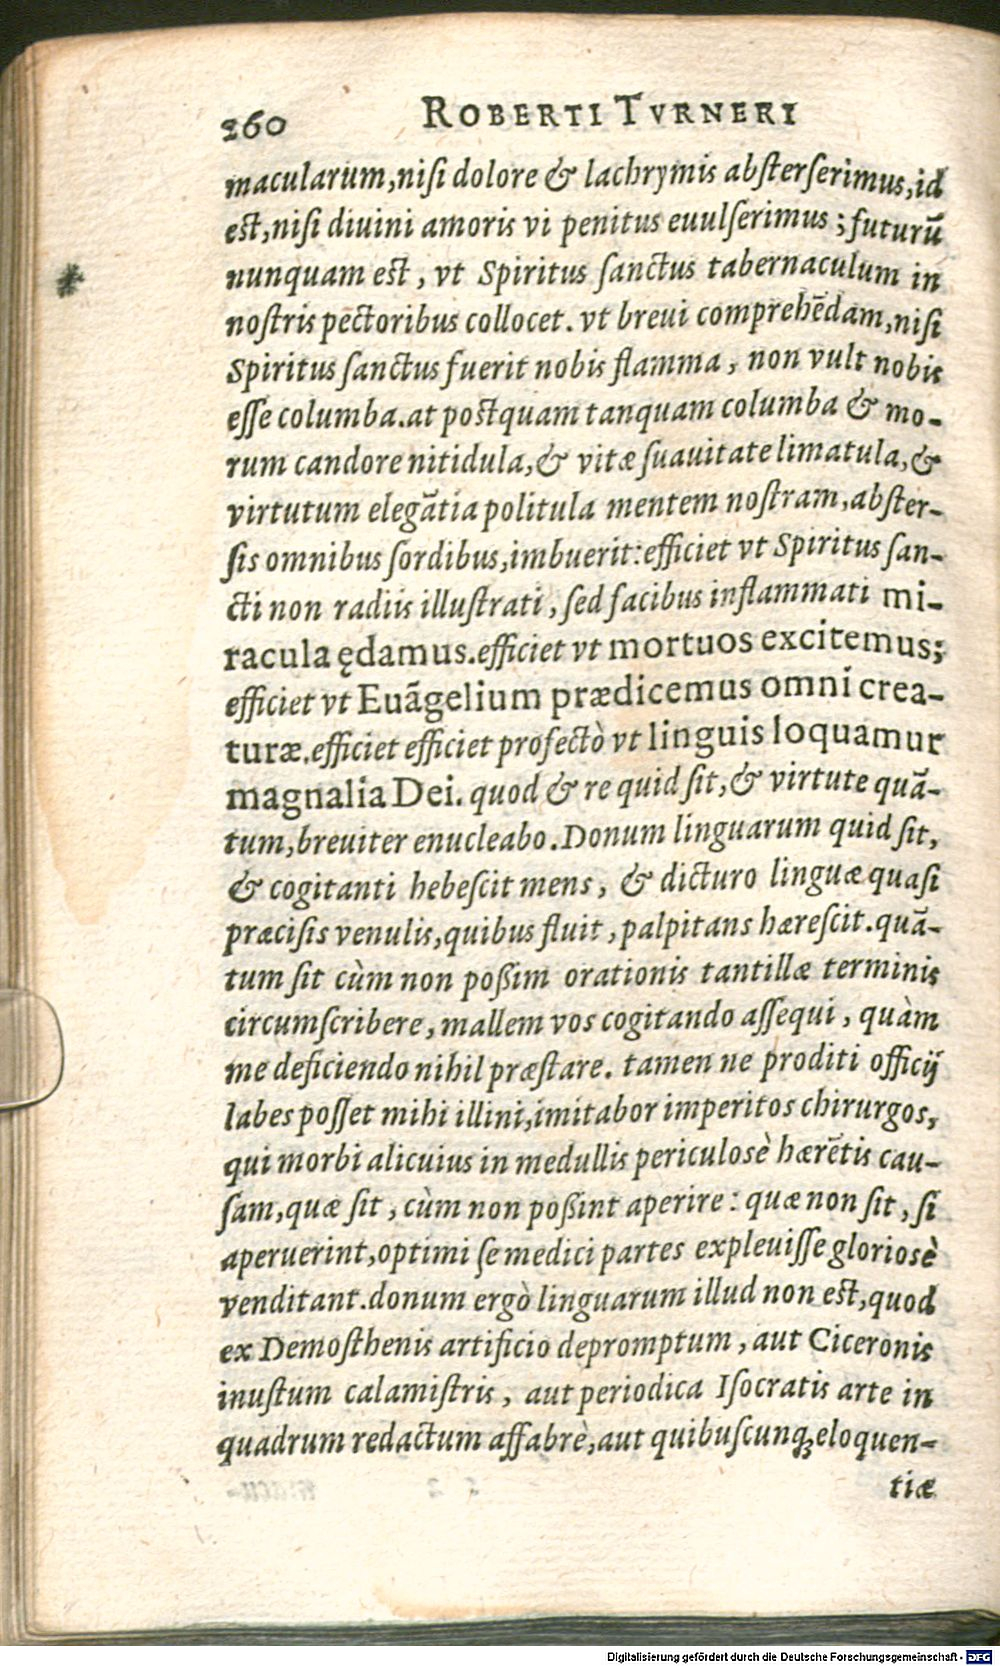 260 ROBERTI TVRNERI
macularum,niſi dolore & lachrymis abſterſerimus,id
eſt,niſi diuini amoris vi penitus euulſerimus ; futurū
nunquam eſt , vt Spiritus ſanctus tabernaculum in
noſtris pectoribus collocet. vt breui comprehēdam,niſi
Spiritus ſanctus fuerit nobis flamma , non vult nobis
eſſe columba.at poſtquam tanquam columba & mo-
rum candore nitidula,& vitæ ſuauitate limatula,&
virtutum elegātia politula mentem noſtram,abſter-
ſis omnibus ſordibus,imbuerit: efficiet vt Spiritus ſan-
cti non radiis illuſtrati , ſed facibus inflammati mi-
racula ędamus. efficiet vt mortuos excitemus;
efficiet vt Euāgelium prædicemus omni crea-
turæ. efficiet efficiet profectò vt linguis loquamur
magnalia Dei. quod & re quid ſit,& virtute quā-
tum,breuiter enucleabo. Donum linguarum quid ſit,
& cogitanti hebeſcit mens , & dicturo linguæ quaſi
præciſis venulis,quibus fluit , palpitans hæreſcit. quā-
tum ſit cùm non poßim orationis tantillæ terminis
circumſcribere , mallem vos cogitando aſſequi , quàm
me deficiendo nihil præſtare. tamen ne proditi officij
labes poſſet mihi illini,imitabor imperitos chirurgos,
qui morbi alicuius in medullis periculosè hærētis cau-
ſam,quæ ſit , cùm non poßint aperire : quæ non ſit , ſi
aperuerint,optimi ſe medici partes expleuiſſe gloriosè
venditant. donum ergò linguarum illud non eſt,quod
ex Demoſthenis artificio depromptum , aut Ciceronis
inuſtum calamiſtris , aut periodica Iſocratis arte in
quadrum redactum affabrè,aut quibuſcunq; eloquen-
tiæ
Digitalisierung gefördert durch die Deutsche Forschungsgemeinschaft - DFG